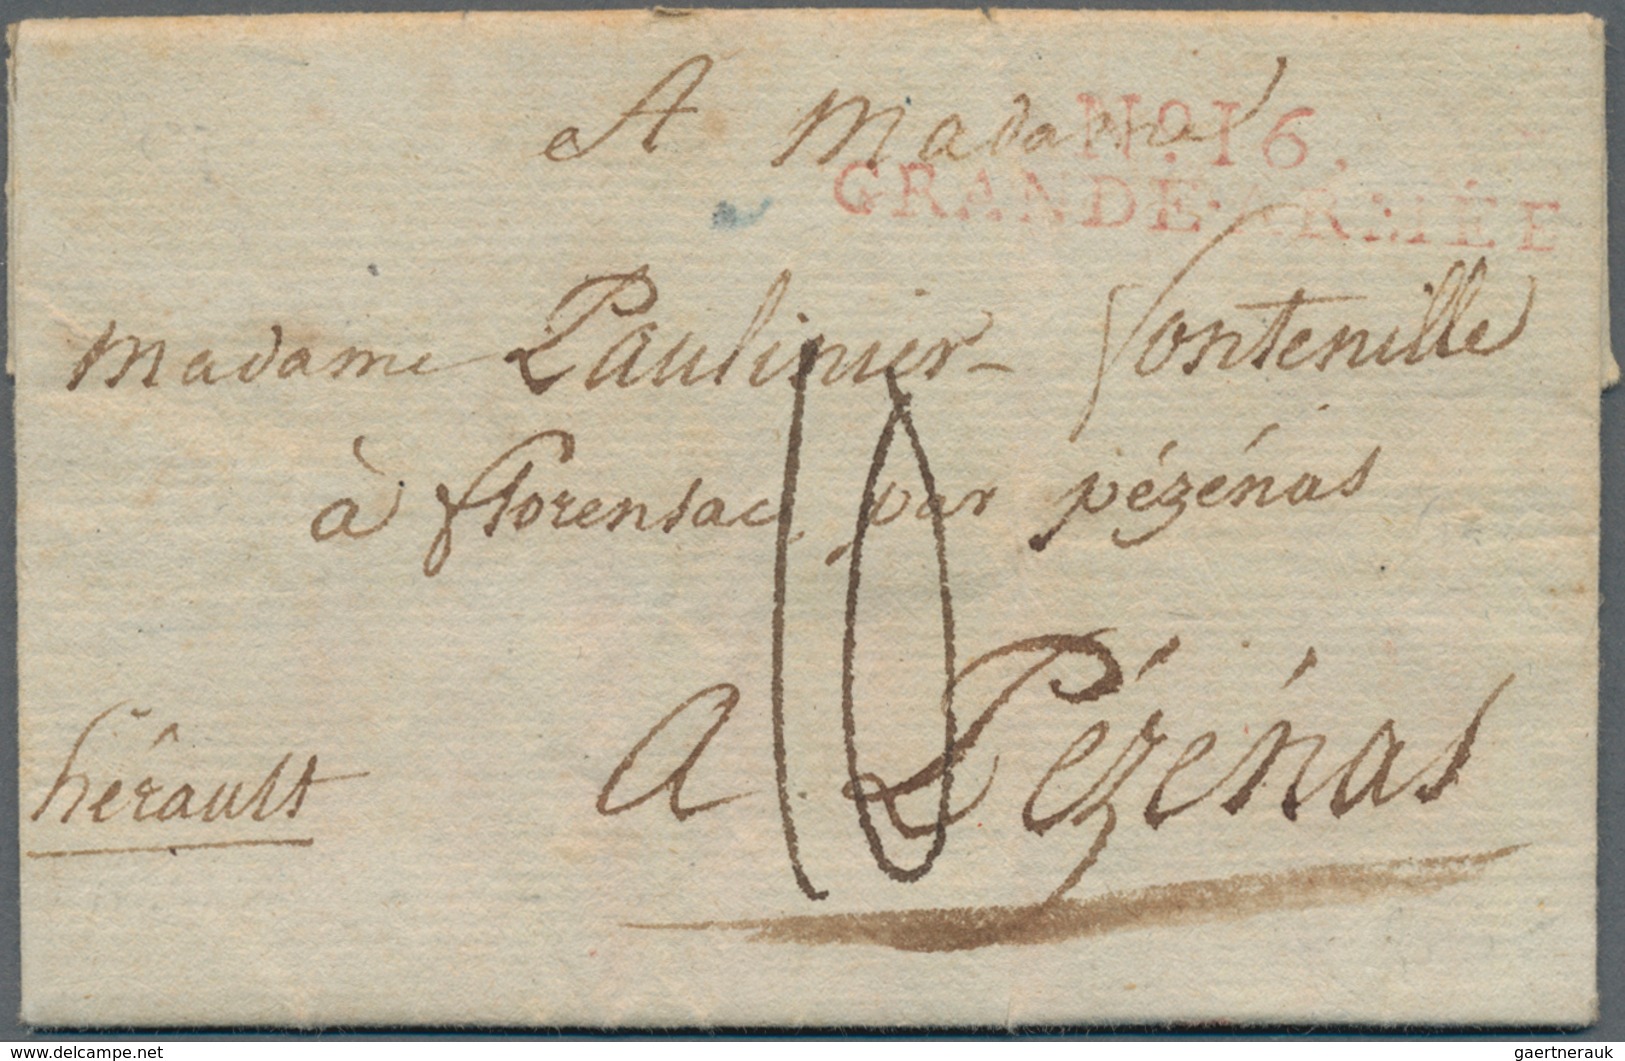 A Madame
No. 16.
GRANDE-ARMÉE
Madame Paulinier - fontenille
à florensac par pézénas
10
A Pézénas
hérault
© www.delcampe.net
gaertnerauk